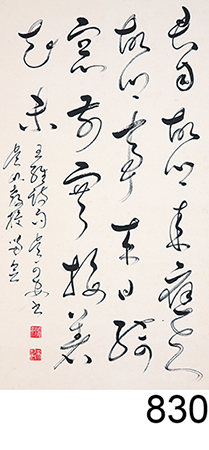 君自故鄉來應知
故鄉事來日綺
窗前寒梅著
花未
王維詩句
教授
830